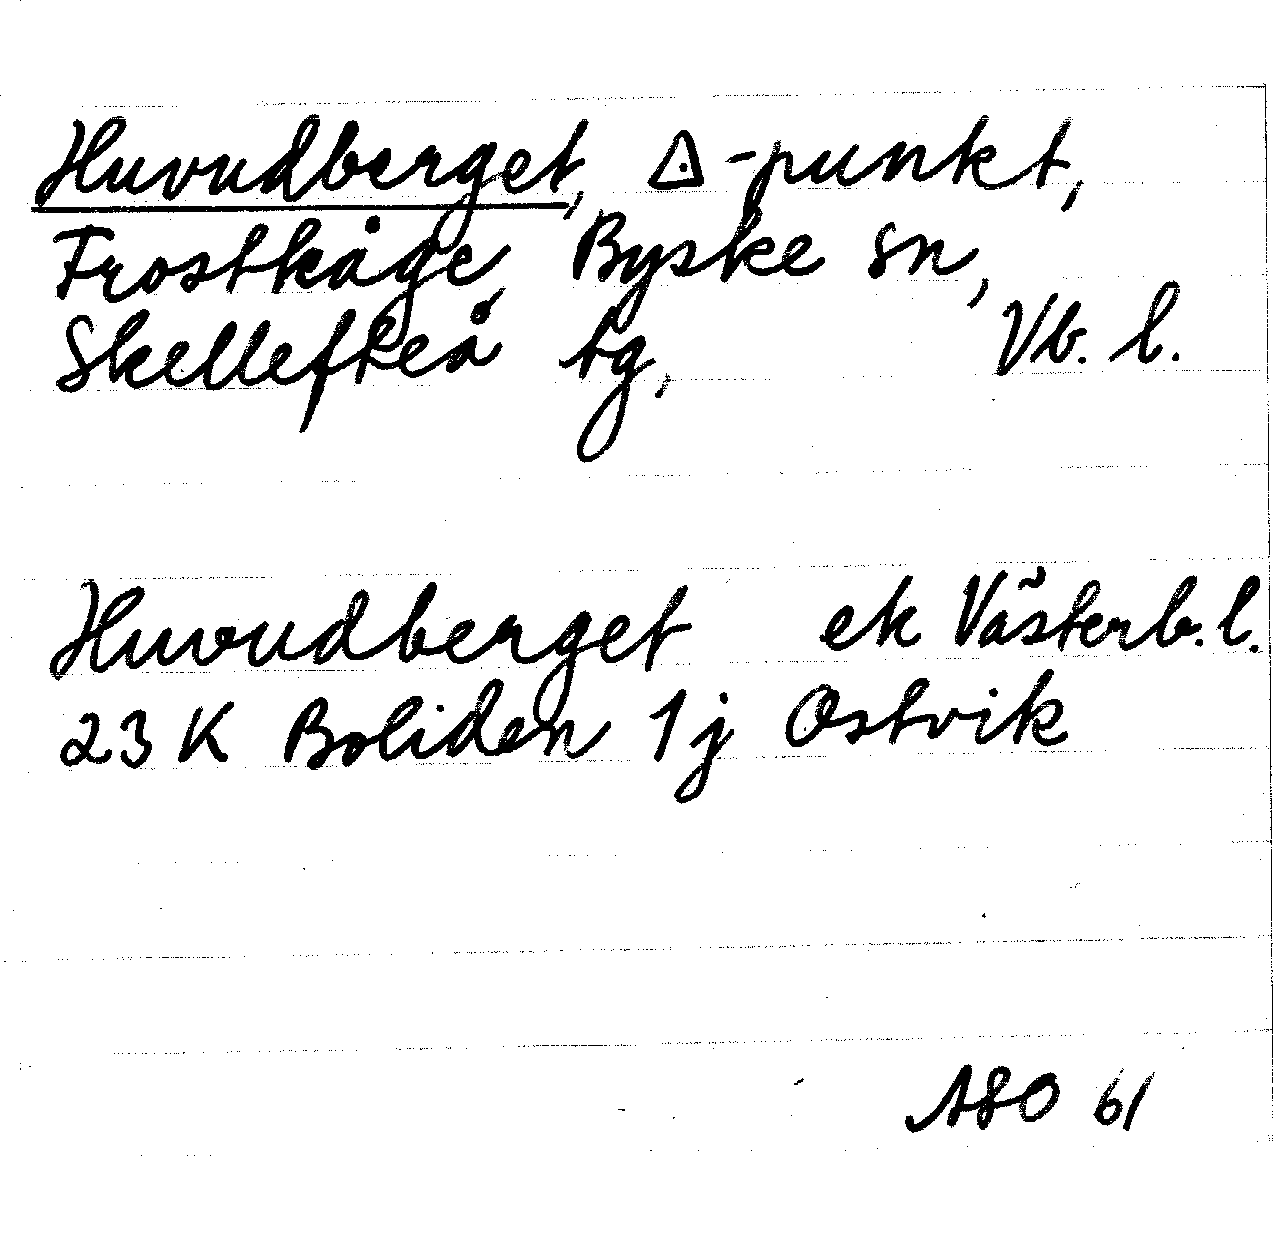 Huvudberget, ◬-punkt,
Frostkåge, Byske sn,
Skellefteå tg, Vb. l.
Huvudberget ek Västerb. l.
23 K Boliden 1 j Ostvik
ASO 61